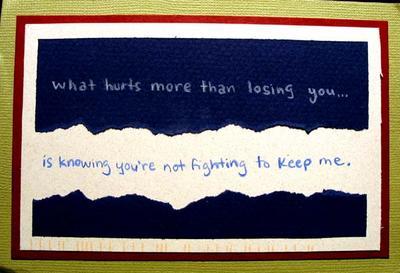 what hurts more than losing you...
is knowing you're not fighting to keep me.